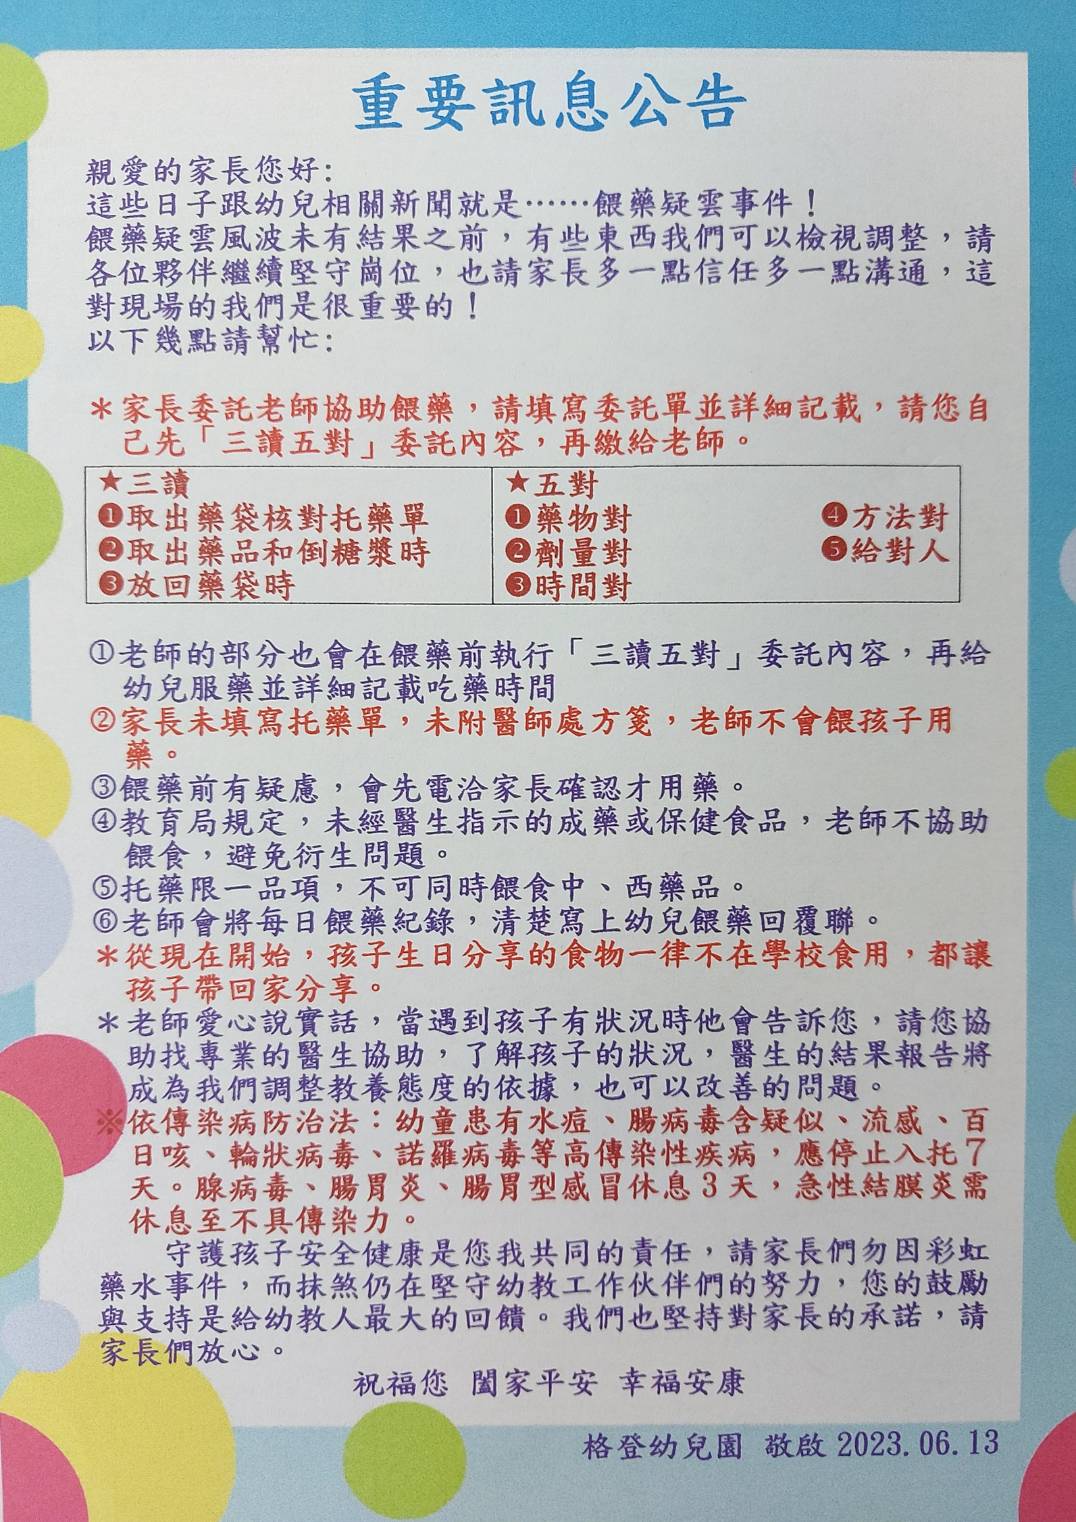 重要訊息公告
親愛的家長您好:
這些日子跟幼兒相關新聞就是……餵藥疑雲事件！
餵藥疑雲風波未有結果之前，有些東西我們可以檢視調整，請
各位夥伴繼續堅守崗位，也請家長多一點信任多一點溝通，這
對現場的我們是很重要的！
以下幾點請幫忙:
＊家長委託老師協助餵藥，請填寫委託單並詳細記載，請您自
己先「三讀五對」委託內容，再繳給老師。
★三讀
❶取出藥袋核對托藥單
❷取出藥品和倒糖漿時
❸放回藥袋時
★五對
❶藥物對
❷劑量對
❸時間對
❹方法對
❺給對人
①老師的部分也會在餵藥前執行「三讀五對」委託內容，再給
幼兒服藥並詳細記載吃藥時間
②家長未填寫托藥單，未附醫師處方箋，老師不會餵孩子用
藥。
③餵藥前有疑慮，會先電洽家長確認才用藥。
④教育局規定，未經醫生指示的成藥或保健食品，老師不協助
餵食，避免衍生問題。
⑤托藥限一品項，不可同時餵食中、西藥品。
⑥老師會將每日餵藥紀錄，清楚寫上幼兒餵藥回覆聯。
＊從現在開始，孩子生日分享的食物一律不在學校食用，都讓
孩子帶回家分享。
＊老師愛心說實話，當遇到孩子有狀況時他會告訴您，請您協
助找專業的醫生協助，了解孩子的狀況，醫生的結果報告將
成為我們調整教養態度的依據，也可以改善的問題。
※依傳染病防治法：幼童患有水痘、腸病毒含疑似、流感、百
日咳、輪狀病毒、諾羅病毒等高傳染性疾病，應停止入托７
天。腺病毒、腸胃炎、腸胃型感冒休息３天，急性結膜炎需
休息至不具傳染力。
守護孩子安全健康是您我共同的責任，請家長們勿因彩虹
藥水事件，而抹煞仍在堅守幼教工作伙伴們的努力，您的鼓勵
與支持是給幼教人最大的回饋。我們也堅持對家長的承諾，請
家長們放心。
祝福您 闔家平安 幸福安康
格登幼兒園 敬啟 2023.06.13